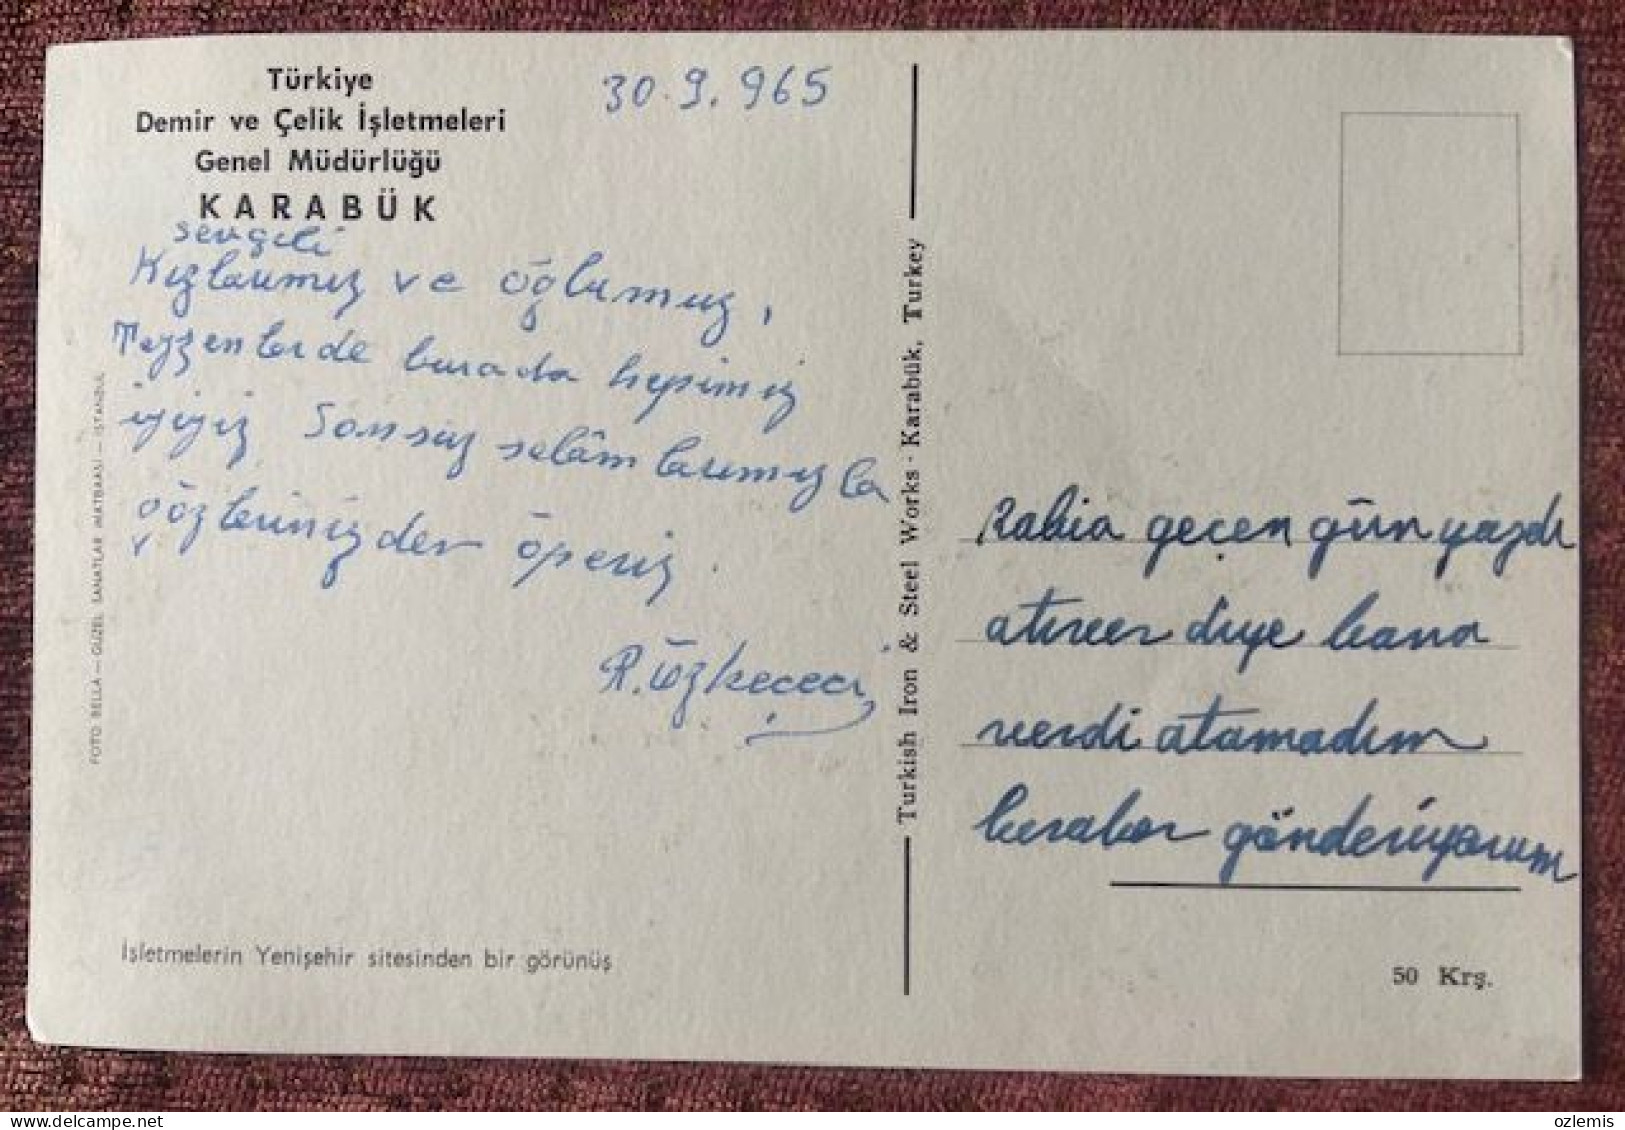 Türkiye
Demir ve Çelik İşletmeleri
Genel Müdürlüğü
KARABÜK
30.9.965
sevgili
Kızlarımız ve oğlumuz,
Teyzenlerde burada hepimiz
iyiyiz. Sonsuz selâmlarımızla
gözlerinizden öperiz.
R. Özkececi
FOTO BELLA — GÜZEL SANATLAR MATBAASI — İSTANBUL
İşletmelerin Yenişehir sitesinden bir görünüş
Turkish Iron & Steel Works - Karabük, Turkey
Rabia geçen gün yazdı
atıver diye bana
verdi atamadım
beraber gönderiyorum
50 Krş.
ozlemis